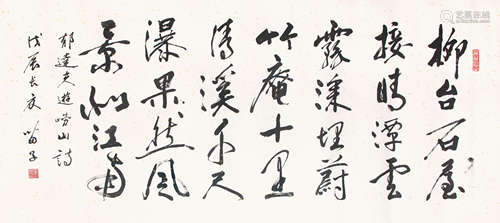 柳台石屋
接晴潭云
霧深埋蔚
竹庵十里
清溪千尺
瀑果然风
景似江南
郁達夫遊嶗山詩
戊辰长夏